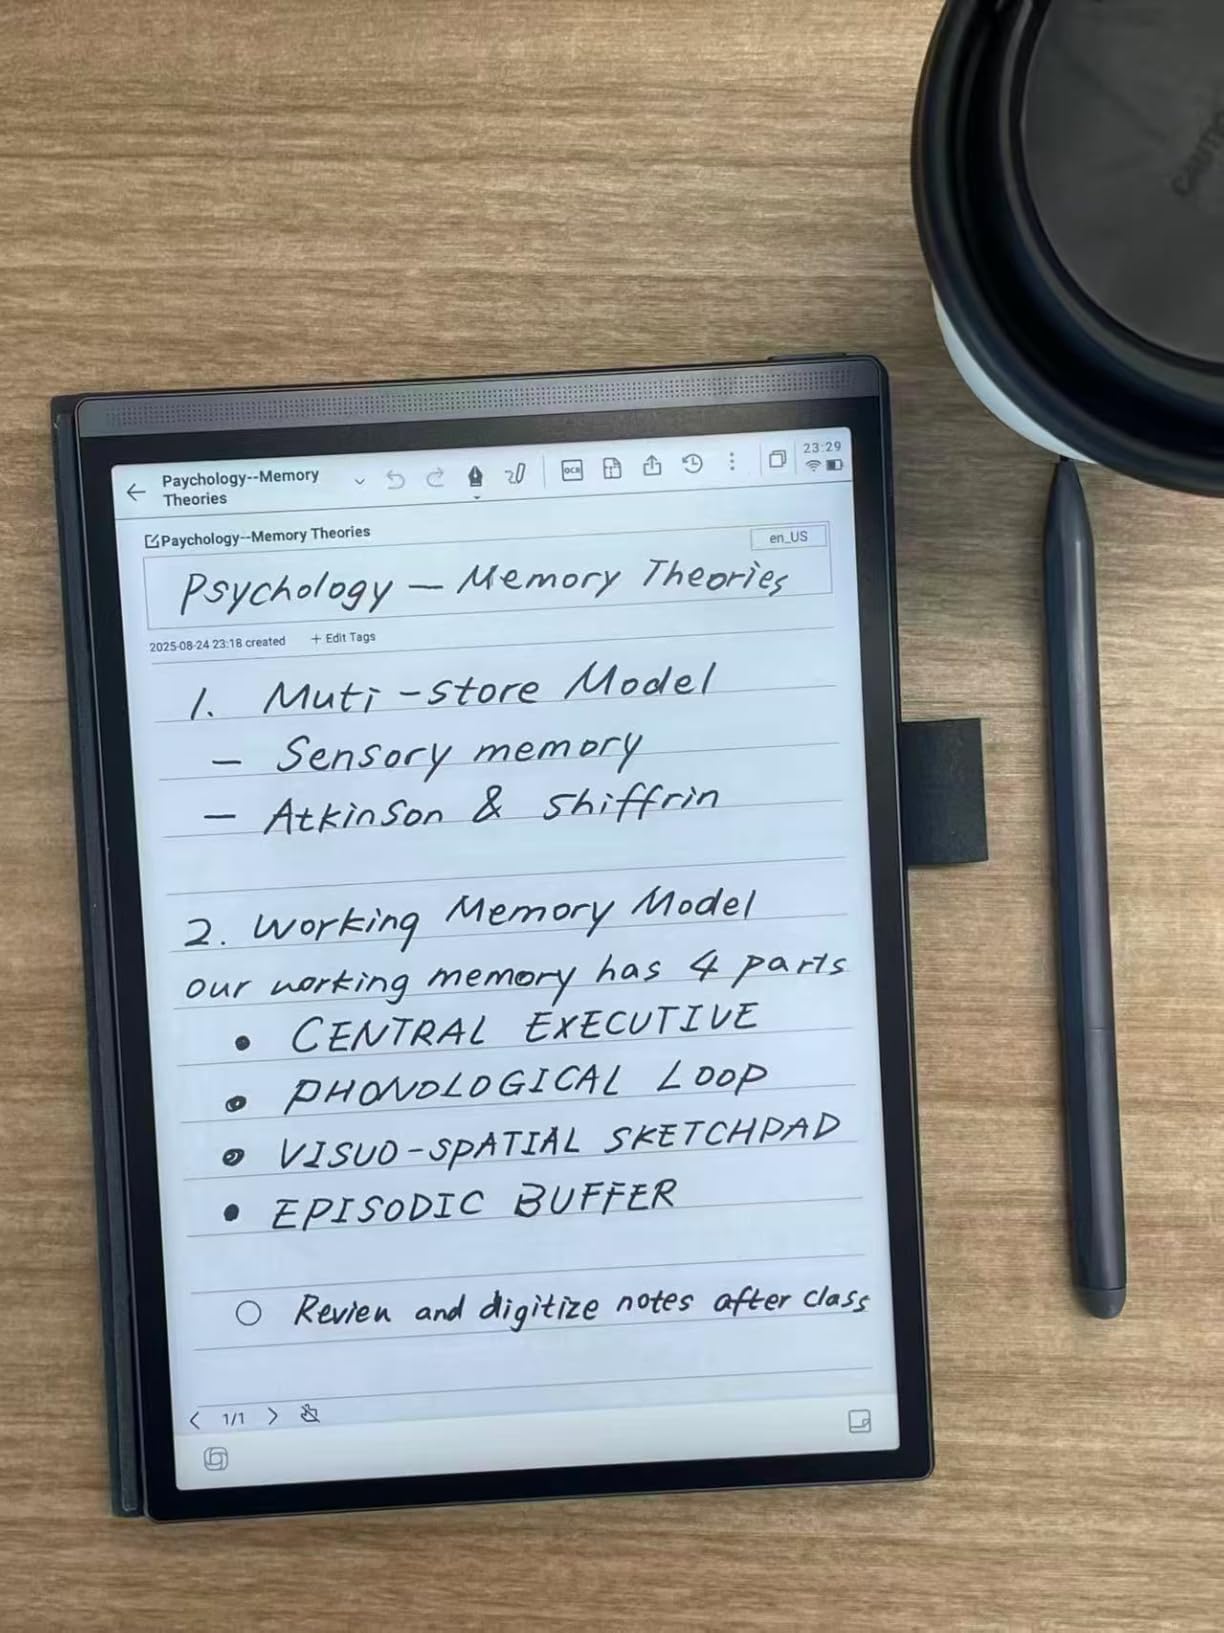 Paychology--Memory
Theories
OCR
23:29
Paychology--Memory Theories
en_US
Psychology — Memory Theories
2025-08-24 23:18 created + Edit Tags
1. Muti-store Model
— Sensory memory
— Atkinson & shiffrin
2. Working Memory Model
our working memory has 4 parts
• CENTRAL EXECUTIVE
• PHONOLOGICAL LOOP
• VISUO-SPATIAL SKETCHPAD
• EPISODIC BUFFER
○ Review and digitize notes after class
1/1